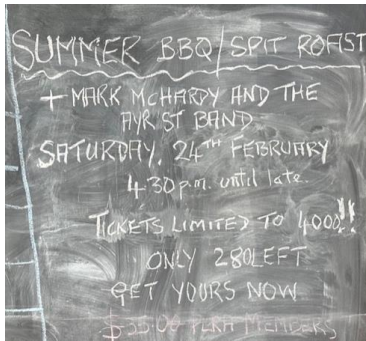 SUMMER BBQ/SPIT ROAST
+ MARK McHARDY AND THE
AYR ST BAND
SATURDAY. 24TH FEBRUARY
4.30p.m. until late.
TICKETS LIMITED TO 4000!!
ONLY 280 LEFT
GET YOURS NOW
MEMBERS